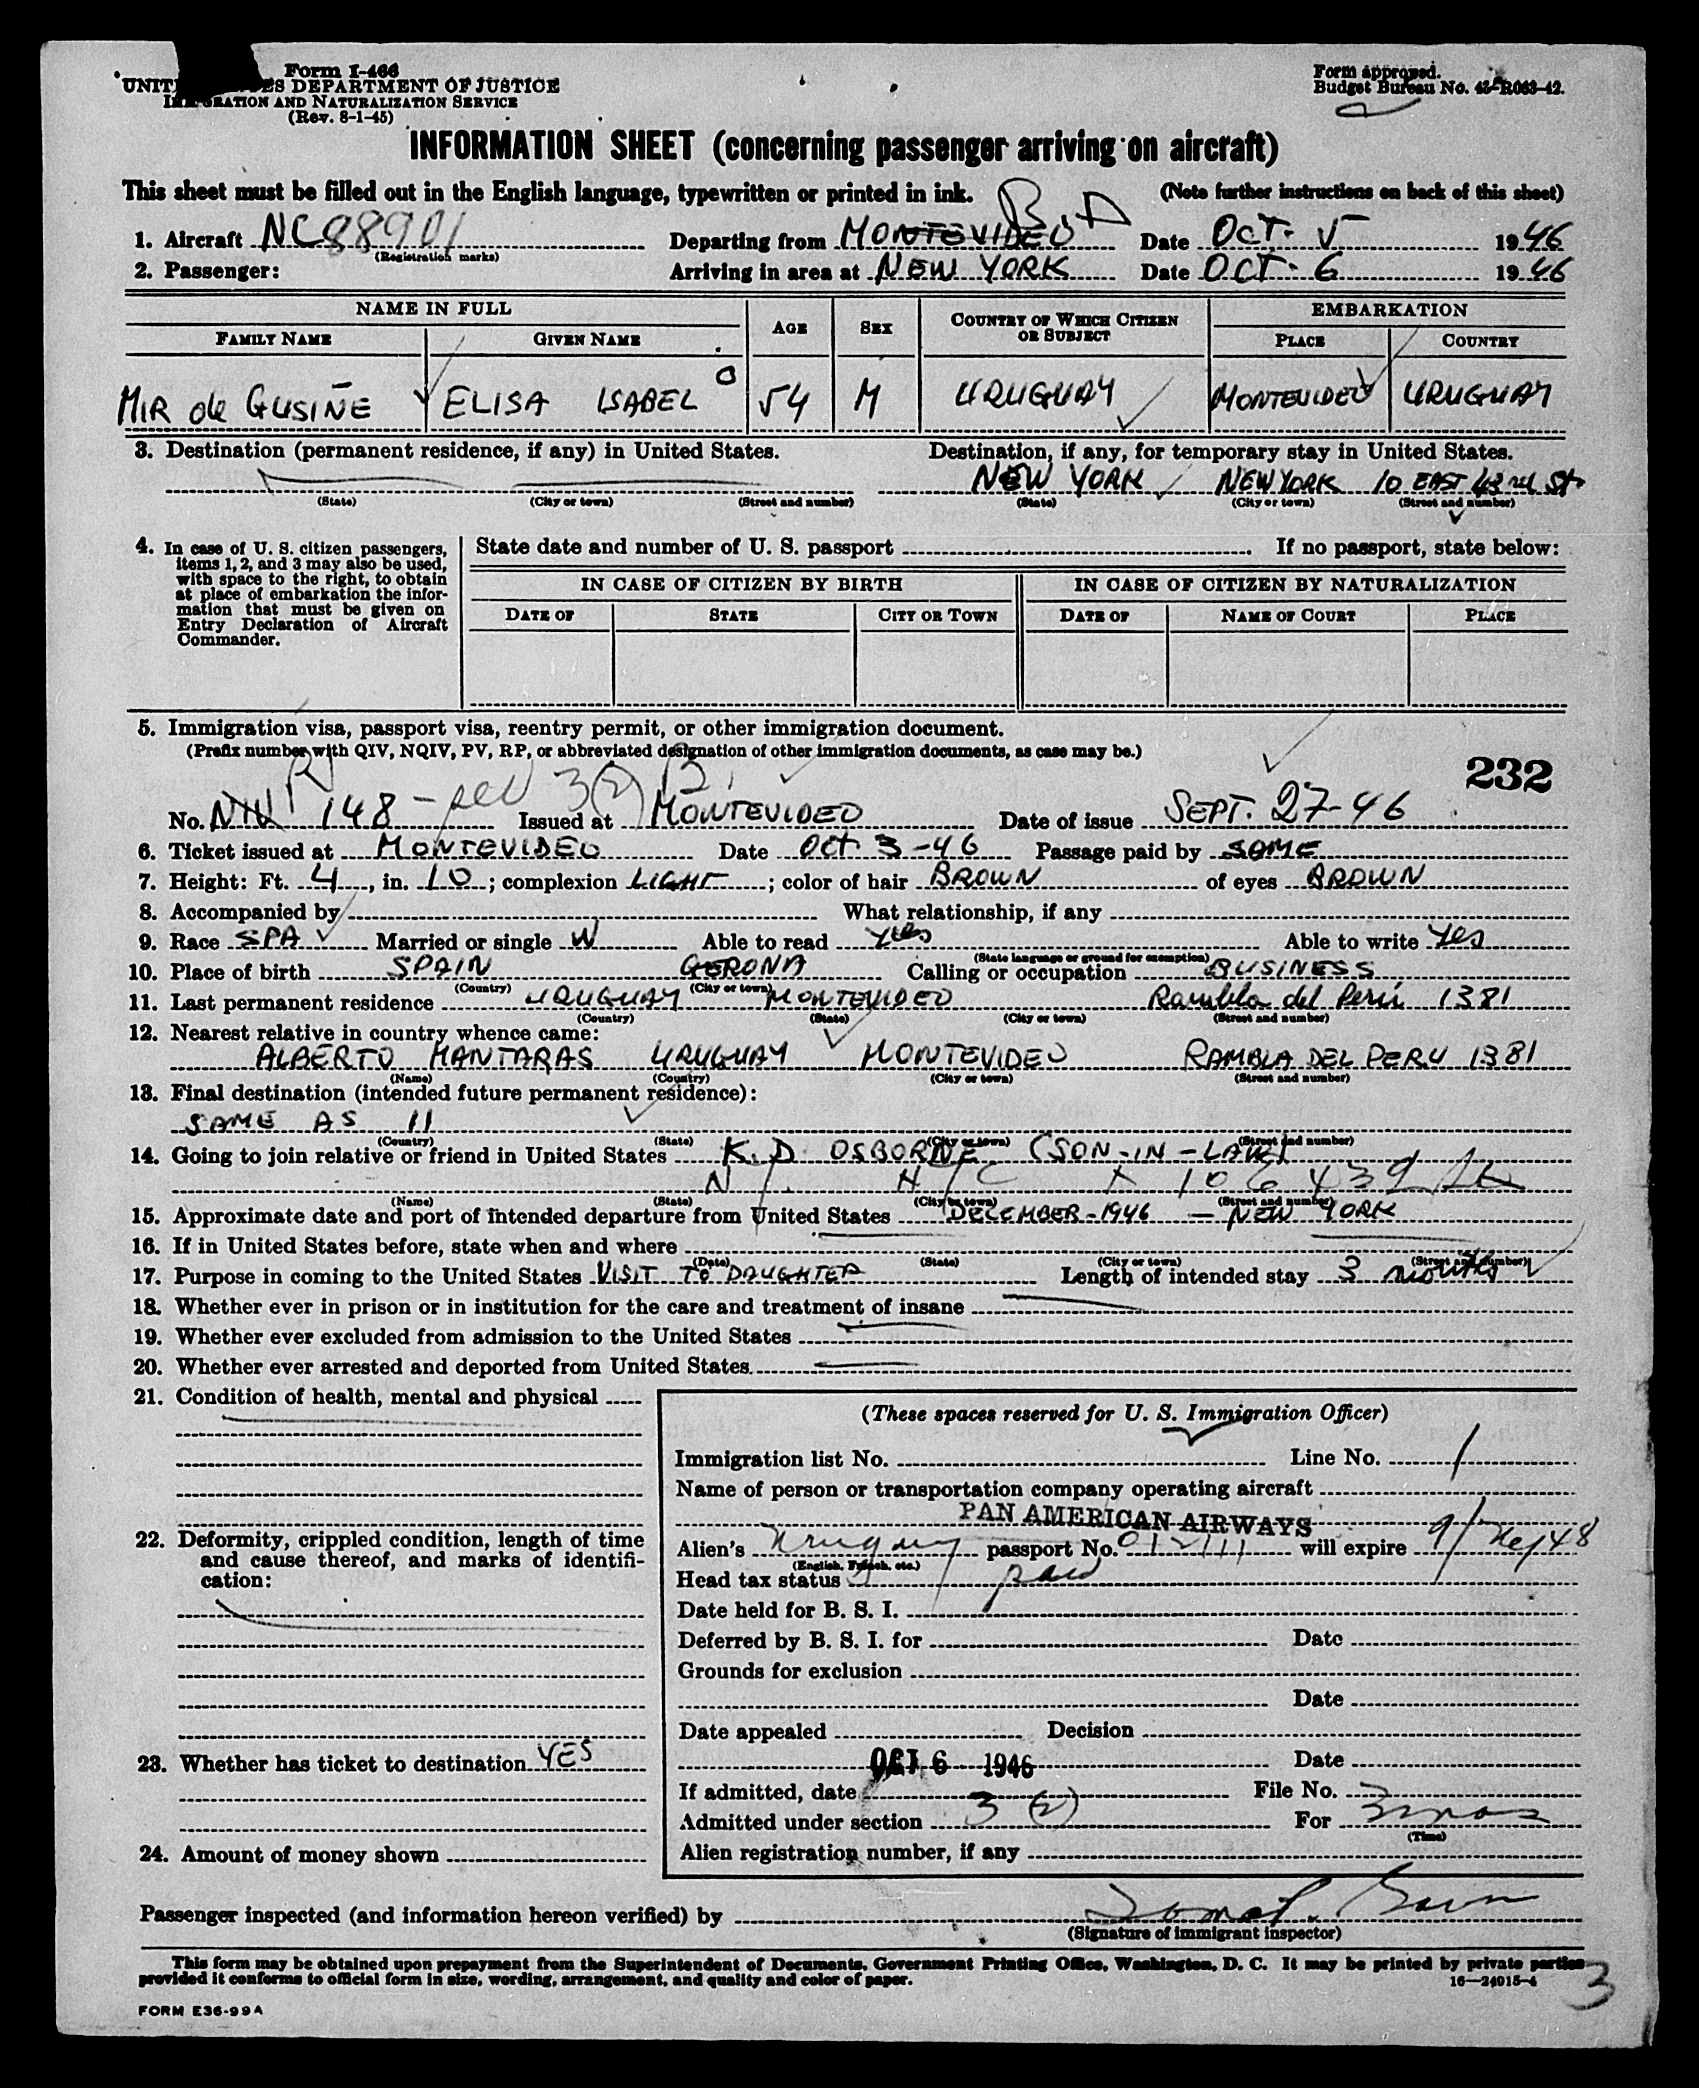 Form I-466
UNITED STATES DEPARTMENT OF JUSTICE
IMMIGRATION AND NATURALIZATION SERVICE
(Rev. 8-1-45)
Form approved.
Budget Bureau No. 43-R063-42.
INFORMATION SHEET (concerning passenger arriving on aircraft)
This sheet must be filled out in the English language, typewritten or printed in ink. (Note further instructions on back of this sheet)
1. Aircraft NC88901 Departing from MONTEVIDEO Date OCT. 5 1946
(Registration marks)
2. Passenger: Arriving in area at NEW YORK Date OCT. 6 1946
NAME IN FULL AGE SEX COUNTRY OF WHICH CITIZEN OR SUBJECT EMBARKATION
FAMILY NAME GIVEN NAME PLACE COUNTRY
MIR de GUSIÑE ELISA ISABEL 54 M URUGUAY MONTEVIDEO URUGUAY
3. Destination (permanent residence, if any) in United States. Destination, if any, for temporary stay in United States.
NEW YORK NEW YORK 10 EAST 43rd St.
(State) (City or town) (Street and number) (State) (City or town) (Street and number)
4. In case of U. S. citizen passengers, items 1, 2, and 3 may also be used, with space to the right, to obtain at place of embarkation the information that must be given on Entry Declaration of Aircraft Commander.
State date and number of U. S. passport If no passport, state below:
IN CASE OF CITIZEN BY BIRTH IN CASE OF CITIZEN BY NATURALIZATION
DATE OF STATE CITY OR TOWN DATE OF NAME OF COURT PLACE
5. Immigration visa, passport visa, reentry permit, or other immigration document.
(Prefix number with QIV, NQIV, PV, RP, or abbreviated designation of other immigration documents, as case may be.)
232
No. NIV 148 - 3(2) Issued at MONTEVIDEO Date of issue SEPT. 27-46
6. Ticket issued at MONTEVIDEO Date Oct 3-46 Passage paid by SAME
7. Height: Ft. 4, in. 10; complexion LIGHT; color of hair BROWN of eyes BROWN
8. Accompanied by What relationship, if any
9. Race SPA Married or single W Able to read yes Able to write Yes
(State language or ground for exemption)
10. Place of birth SPAIN GERONA Calling or occupation BUSINESS
(Country) (City or town)
11. Last permanent residence URUGUAY MONTEVIDEO Rambla del Perú 1381
(Country) (State) (City or town) (Street and number)
12. Nearest relative in country whence came:
ALBERTO MANTARAS URUGUAY MONTEVIDEO RAMBLA DEL PERU 1381
(Name) (Country) (City or town) (Street and number)
13. Final destination (intended future permanent residence):
SAME AS 11
(Country) (State) (City or town) (Street and number)
14. Going to join relative or friend in United States K. D OSBORNE (SON-IN-LAW)
(Name) (State) (City or town) (Street and number)
15. Approximate date and port of intended departure from United States DECEMBER-1946 - NEW YORK
16. If in United States before, state when and where
(Date) (State) (City or town) (Street and number)
17. Purpose in coming to the United States VISIT TO DAUGHTER Length of intended stay 3 months
18. Whether ever in prison or in institution for the care and treatment of insane
19. Whether ever excluded from admission to the United States
20. Whether ever arrested and deported from United States.
21. Condition of health, mental and physical
22. Deformity, crippled condition, length of time and cause thereof, and marks of identification:
23. Whether has ticket to destination YES
24. Amount of money shown
(These spaces reserved for U. S. Immigration Officer)
Immigration list No. Line No. 1
Name of person or transportation company operating aircraft
PAN AMERICAN AIRWAYS
Alien's Uruguay passport No. will expire
(English, French, etc.)
Head tax status paid
Date held for B. S. I.
Deferred by B. S. I. for Date
Grounds for exclusion
Date
Date appealed Decision
OCT 6 1946 Date
If admitted, date File No.
Admitted under section 3 (2) For 3 mos
(Time)
Alien registration number, if any
Passenger inspected (and information hereon verified) by
(Signature of immigrant inspector)
This form may be obtained upon prepayment from the Superintendent of Documents, Government Printing Office, Washington, D. C. It may be printed by private parties
provided it conforms to official form in size, wording, arrangement, and quality and color of paper. 16—24015-4
3
FORM E36-99A